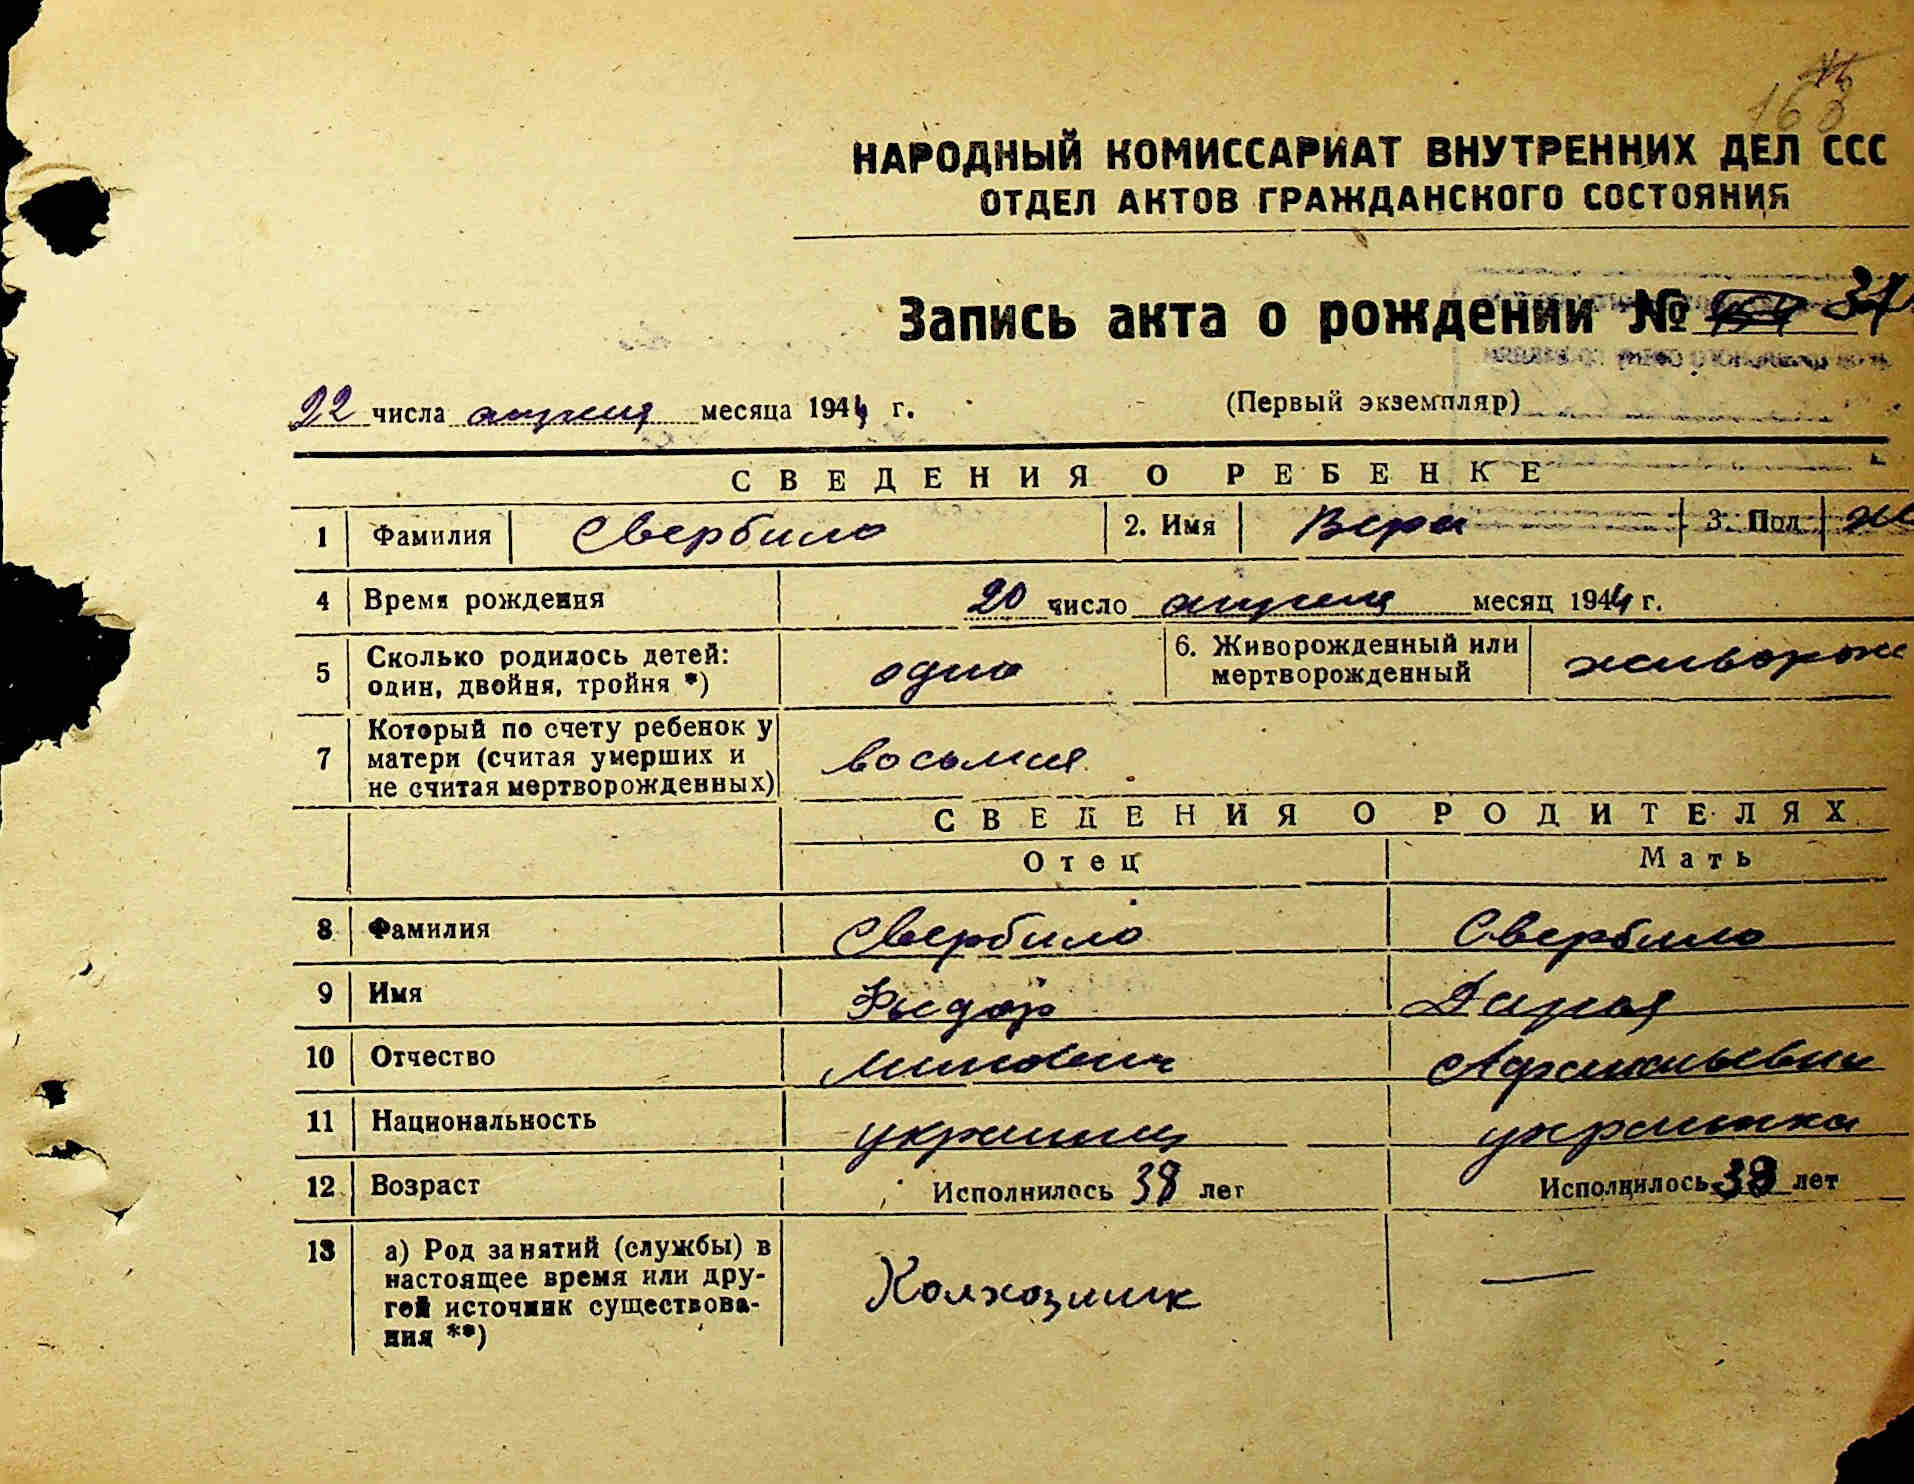 168
НАРОДНЫЙ КОМИССАРИАТ ВНУТРЕННИХ ДЕЛ ССС
ОТДЕЛ АКТОВ ГРАЖДАНСКОГО СОСТОЯНИЯ
Запись акта о рождении № 37
22 числа апреля месяца 1944 г. (Первый экземпляр)
СВЕДЕНИЯ О РЕБЕНКЕ
1 Фамилия Свербило 2. Имя Вера 3. Пол ж
4 Время рождения 20 число апреля месяц 1944 г.
5 Сколько родилось детей: один, двойня, тройня *) одно 6. Живорожденный или мертворожденный живорож
7 Который по счету ребенок у матери (считая умерших и не считая мертворожденных) восьмия
СВЕДЕНИЯ О РОДИТЕЛЯХ
Отец Мать
8 Фамилия Свербило Свербило
9 Имя Фыдор Дарья
10 Отчество Минович Афанасьевна
11 Национальность украинец украинка
12 Возраст Исполнилось 38 лет Исполнилось 38 лет
13 а) Род занятий (службы) в настоящее время или дру-
гой источник существова-
ния **) Колхозник —